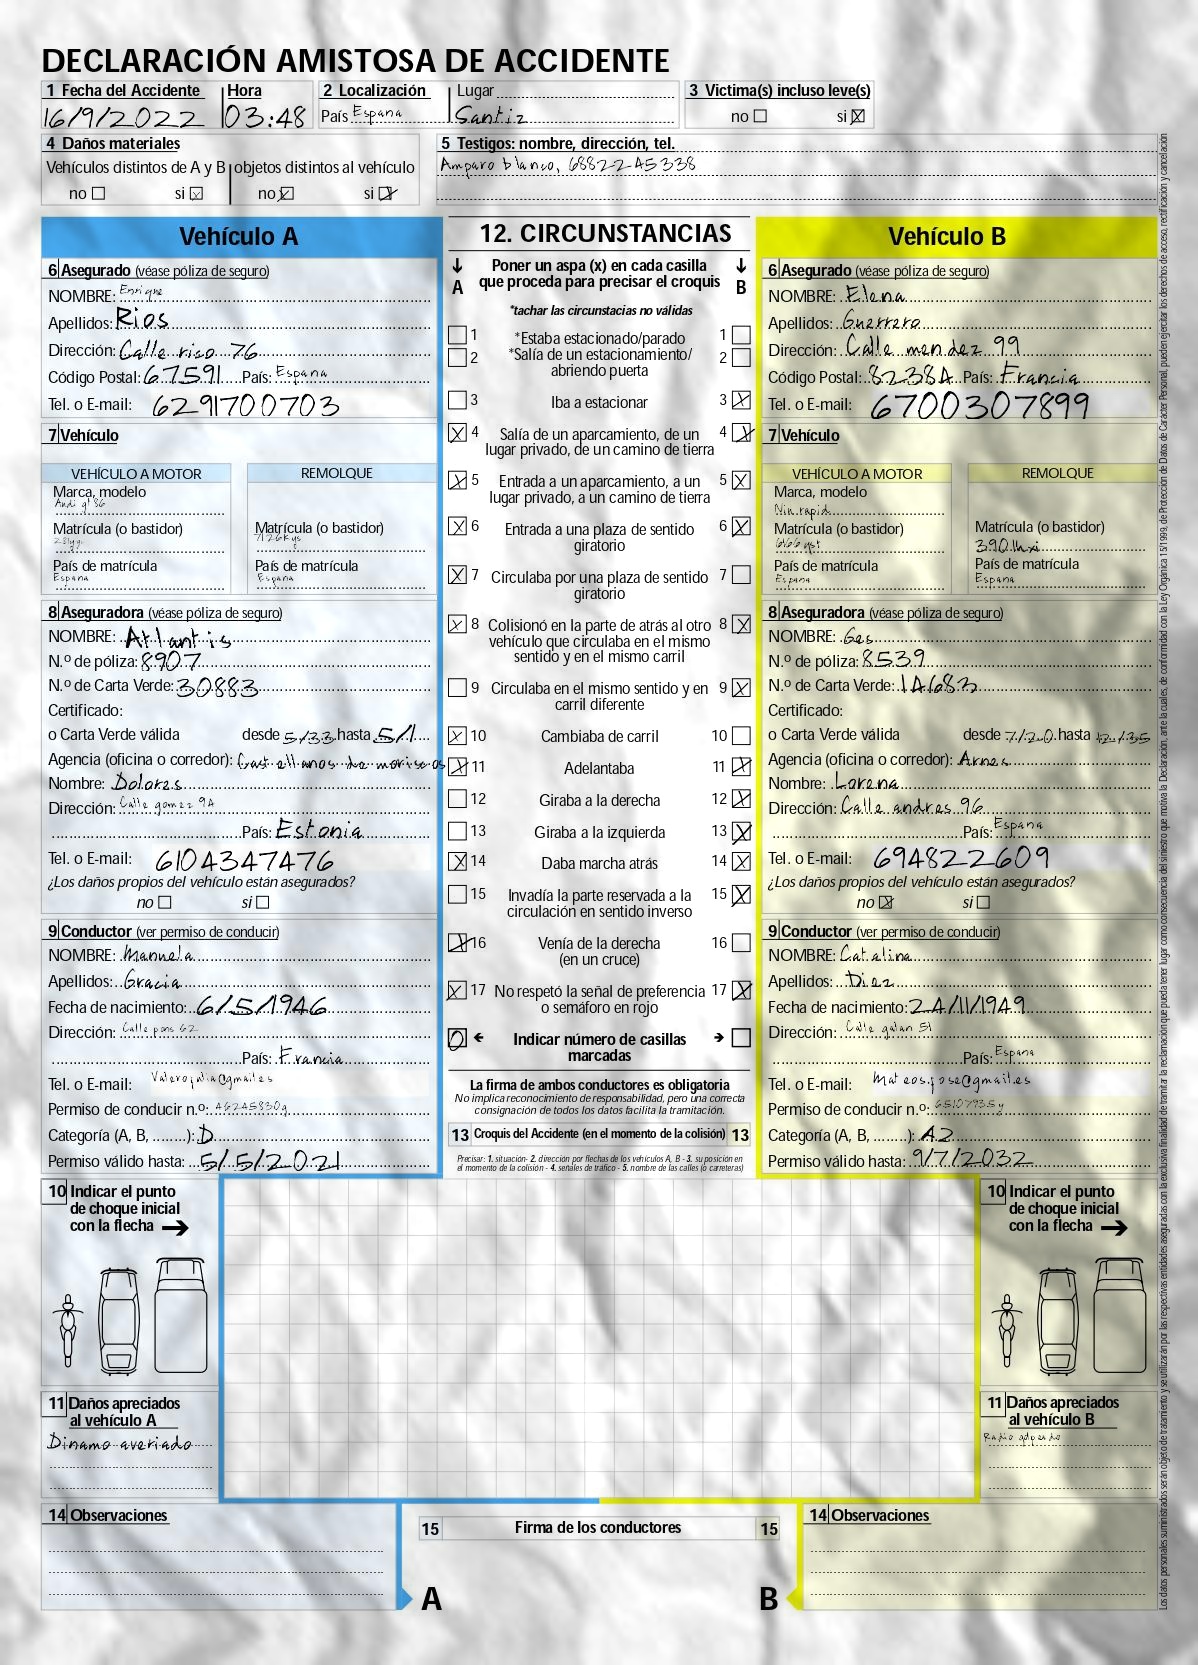 DECLARACIÓN AMISTOSA DE ACCIDENTE
1 Fecha del Accidente Hora 2 Localización Lugar 3 Victima(s) incluso leve(s)
16/9/2022 03:48 País Espana Santiz no si
4 Daños materiales 5 Testigos: nombre, dirección, tel.
Vehículos distintos de A y B objetos distintos al vehículo Amparo blanco, 6882245338
no si no si
Vehículo A
6 Asegurado (véase póliza de seguro)
NOMBRE: Enrique
Apellidos: Rios
Dirección: Calle rico 76
Código Postal: 67591 País: Espana
Tel. o E-mail: 6291700703
7 Vehículo
VEHÍCULO A MOTOR REMOLQUE
Marca, modelo
Matrícula (o bastidor) Matrícula (o bastidor)
7126kys
País de matrícula País de matrícula
Espana Espana
8 Aseguradora (véase póliza de seguro)
NOMBRE: Atlantis
N.º de póliza: 8907
N.º de Carta Verde: 30883
Certificado:
o Carta Verde válida desde 5/33 hasta 5/1
Agencia (oficina o corredor): Castellanos de moriscos
Nombre: Dolores
Dirección: Calle gomez 9A
País: Estonia
Tel. o E-mail: 6104347476
¿Los daños propios del vehículo están asegurados?
no si
9 Conductor (ver permiso de conducir)
NOMBRE: Manuela
Apellidos: Gracia
Fecha de nacimiento: 6/5/1946
Dirección: Calle pons 62
País: Francia
Tel. o E-mail: Valerojulia@gmail.es
Permiso de conducir n.º: 46245830g
Categoría (A, B, ........): D
Permiso válido hasta: 5/5/2021
12. CIRCUNSTANCIAS
A Poner un aspa (x) en cada casilla B
que proceda para precisar el croquis
*tachar las circunstacias no válidas
1 *Estaba estacionado/parado 1
2 *Salía de un estacionamiento/ 2
abriendo puerta
3 Iba a estacionar 3
4 Salía de un aparcamiento, de un 4
lugar privado, de un camino de tierra
5 Entrada a un aparcamiento, a un 5
lugar privado, a un camino de tierra
6 Entrada a una plaza de sentido 6
giratorio
7 Circulaba por una plaza de sentido 7
giratorio
8 Colisionó en la parte de atrás al otro 8
vehículo que circulaba en el mismo
sentido y en el mismo carril
9 Circulaba en el mismo sentido y en 9
carril diferente
10 Cambiaba de carril 10
11 Adelantaba 11
12 Giraba a la derecha 12
13 Giraba a la izquierda 13
14 Daba marcha atrás 14
15 Invadía la parte reservada a la 15
circulación en sentido inverso
16 Venía de la derecha 16
(en un cruce)
17 No respetó la señal de preferencia 17
o semáforo en rojo
0 Indicar número de casillas
marcadas
La firma de ambos conductores es obligatoria
No implica reconocimiento de responsabilidad, pero una correcta
consignación de todos los datos facilita la tramitación.
13 Croquis del Accidente (en el momento de la colisión) 13
Precisar: 1. situación- 2. dirección por flechas de los vehículos A, B - 3. su posición en
el momento de la colisión - 4. señales de tráfico - 5. nombre de las calles (o carreteras)
Vehículo B
6 Asegurado (véase póliza de seguro)
NOMBRE: Elena
Apellidos: Guerrero
Dirección: Calle mendez 99
Código Postal: 82384 País: Francia
Tel. o E-mail: 6700307899
7 Vehículo
VEHÍCULO A MOTOR REMOLQUE
Marca, modelo
Nin rapid
Matrícula (o bastidor) Matrícula (o bastidor)
País de matrícula País de matrícula
Espana Espana
8 Aseguradora (véase póliza de seguro)
NOMBRE: Ges
N.º de póliza: 8539
N.º de Carta Verde: 14683
Certificado:
o Carta Verde válida desde 7/20 hasta 12/35
Agencia (oficina o corredor): Arnes
Nombre: Lorena
Dirección: Calle andres 96
País: Espana
Tel. o E-mail: 694822609
¿Los daños propios del vehículo están asegurados?
no si
9 Conductor (ver permiso de conducir)
NOMBRE: Catalina
Apellidos: Diez
Fecha de nacimiento: 24/11/1949
Dirección: Calle galan 51
País: Espana
Tel. o E-mail: Mateos.jose@gmail.es
Permiso de conducir n.º: 6510793.5y
Categoría (A, B, ........): A2
Permiso válido hasta: 9/7/2032
10 Indicar el punto
de choque inicial
con la flecha
11 Daños apreciados
al vehículo A
Dinamo averiado
10 Indicar el punto
de choque inicial
con la flecha
11 Daños apreciados
al vehículo B
Radio golpeado
14 Observaciones
15 Firma de los conductores 15
A B
14 Observaciones
Los datos personales suministrados serán objeto de tratamiento y se utilizarán por las respectivas entidades aseguradas con la exclusiva finalidad de tramitar la reclamación que pueda tener lugar como consecuencia del siniestro que motiva la Declaración, ante la cuales, de conformidad con la Ley Orgánica 15/1999, de Protección de Datos de Carácter Personal, pueden ejercitar los derechos de acceso, rectificación y cancelación